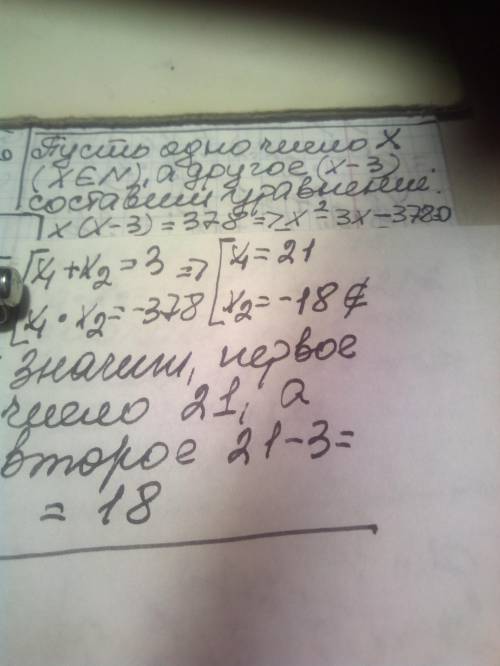 Пусть одно число X
(X∈N), а другое (x-3).
составим уравнение:
x(x-3)=378=>x²-3x-378=0
[x₁+x₂=3 => [x₁=21
[x₁•x₂=-378 [x₂=-18∉
значит, первое
число 21, а
второе 21-3=
=18